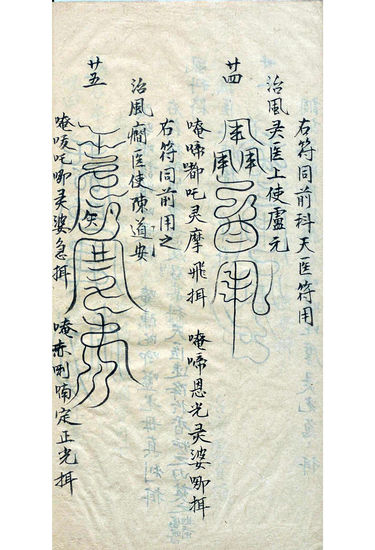 右符同前科天医符用
廿四
治風灵医上使盧元
唵啼嘟吒灵摩飛挕 唵啼恩光灵婆哪挕
右符同前用之
廿五
治風癇医使陳道安
唵唛吒哪灵婆急挕 唵赤唎喃定正光挕